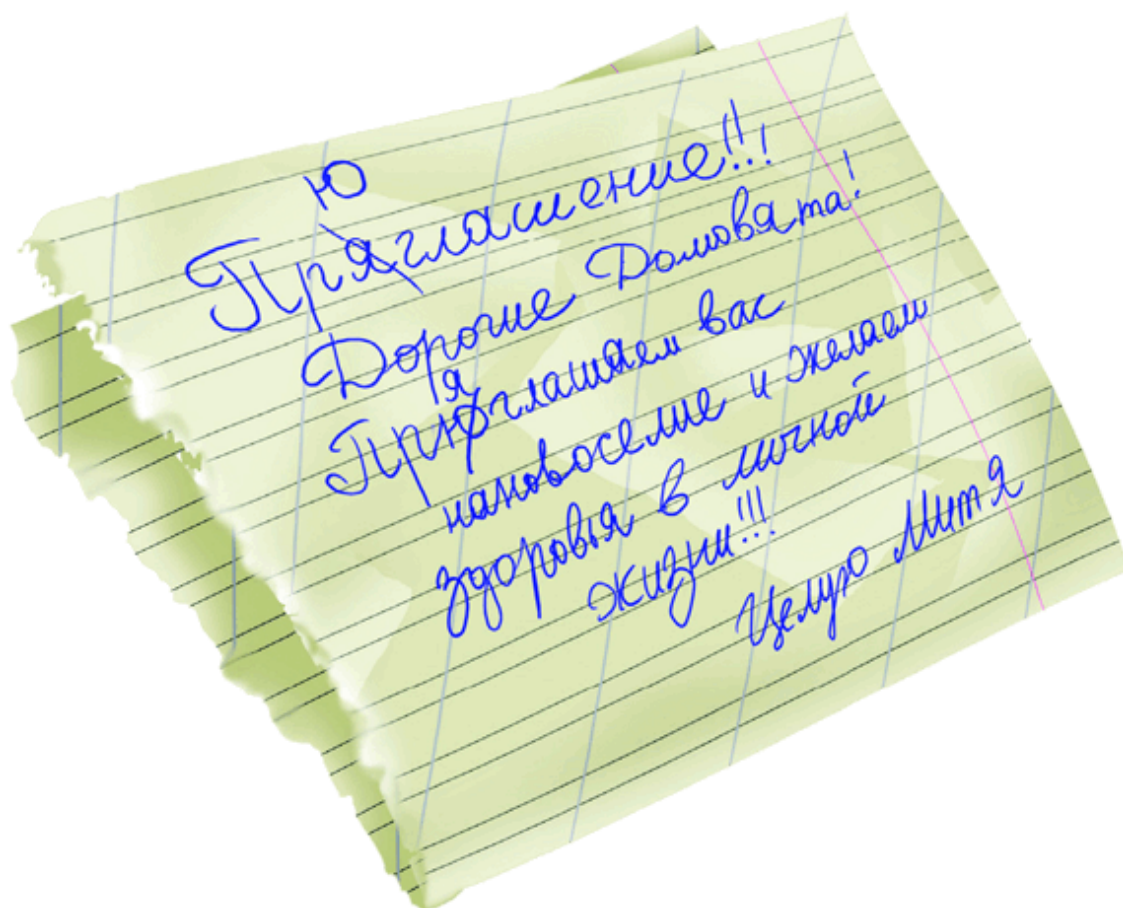 Прюглашение!!!
Дорогие Домовята!
Пряглашяем вас
нановоселие и желаем
здоровья в личной
жизни!!!
Целую Митя